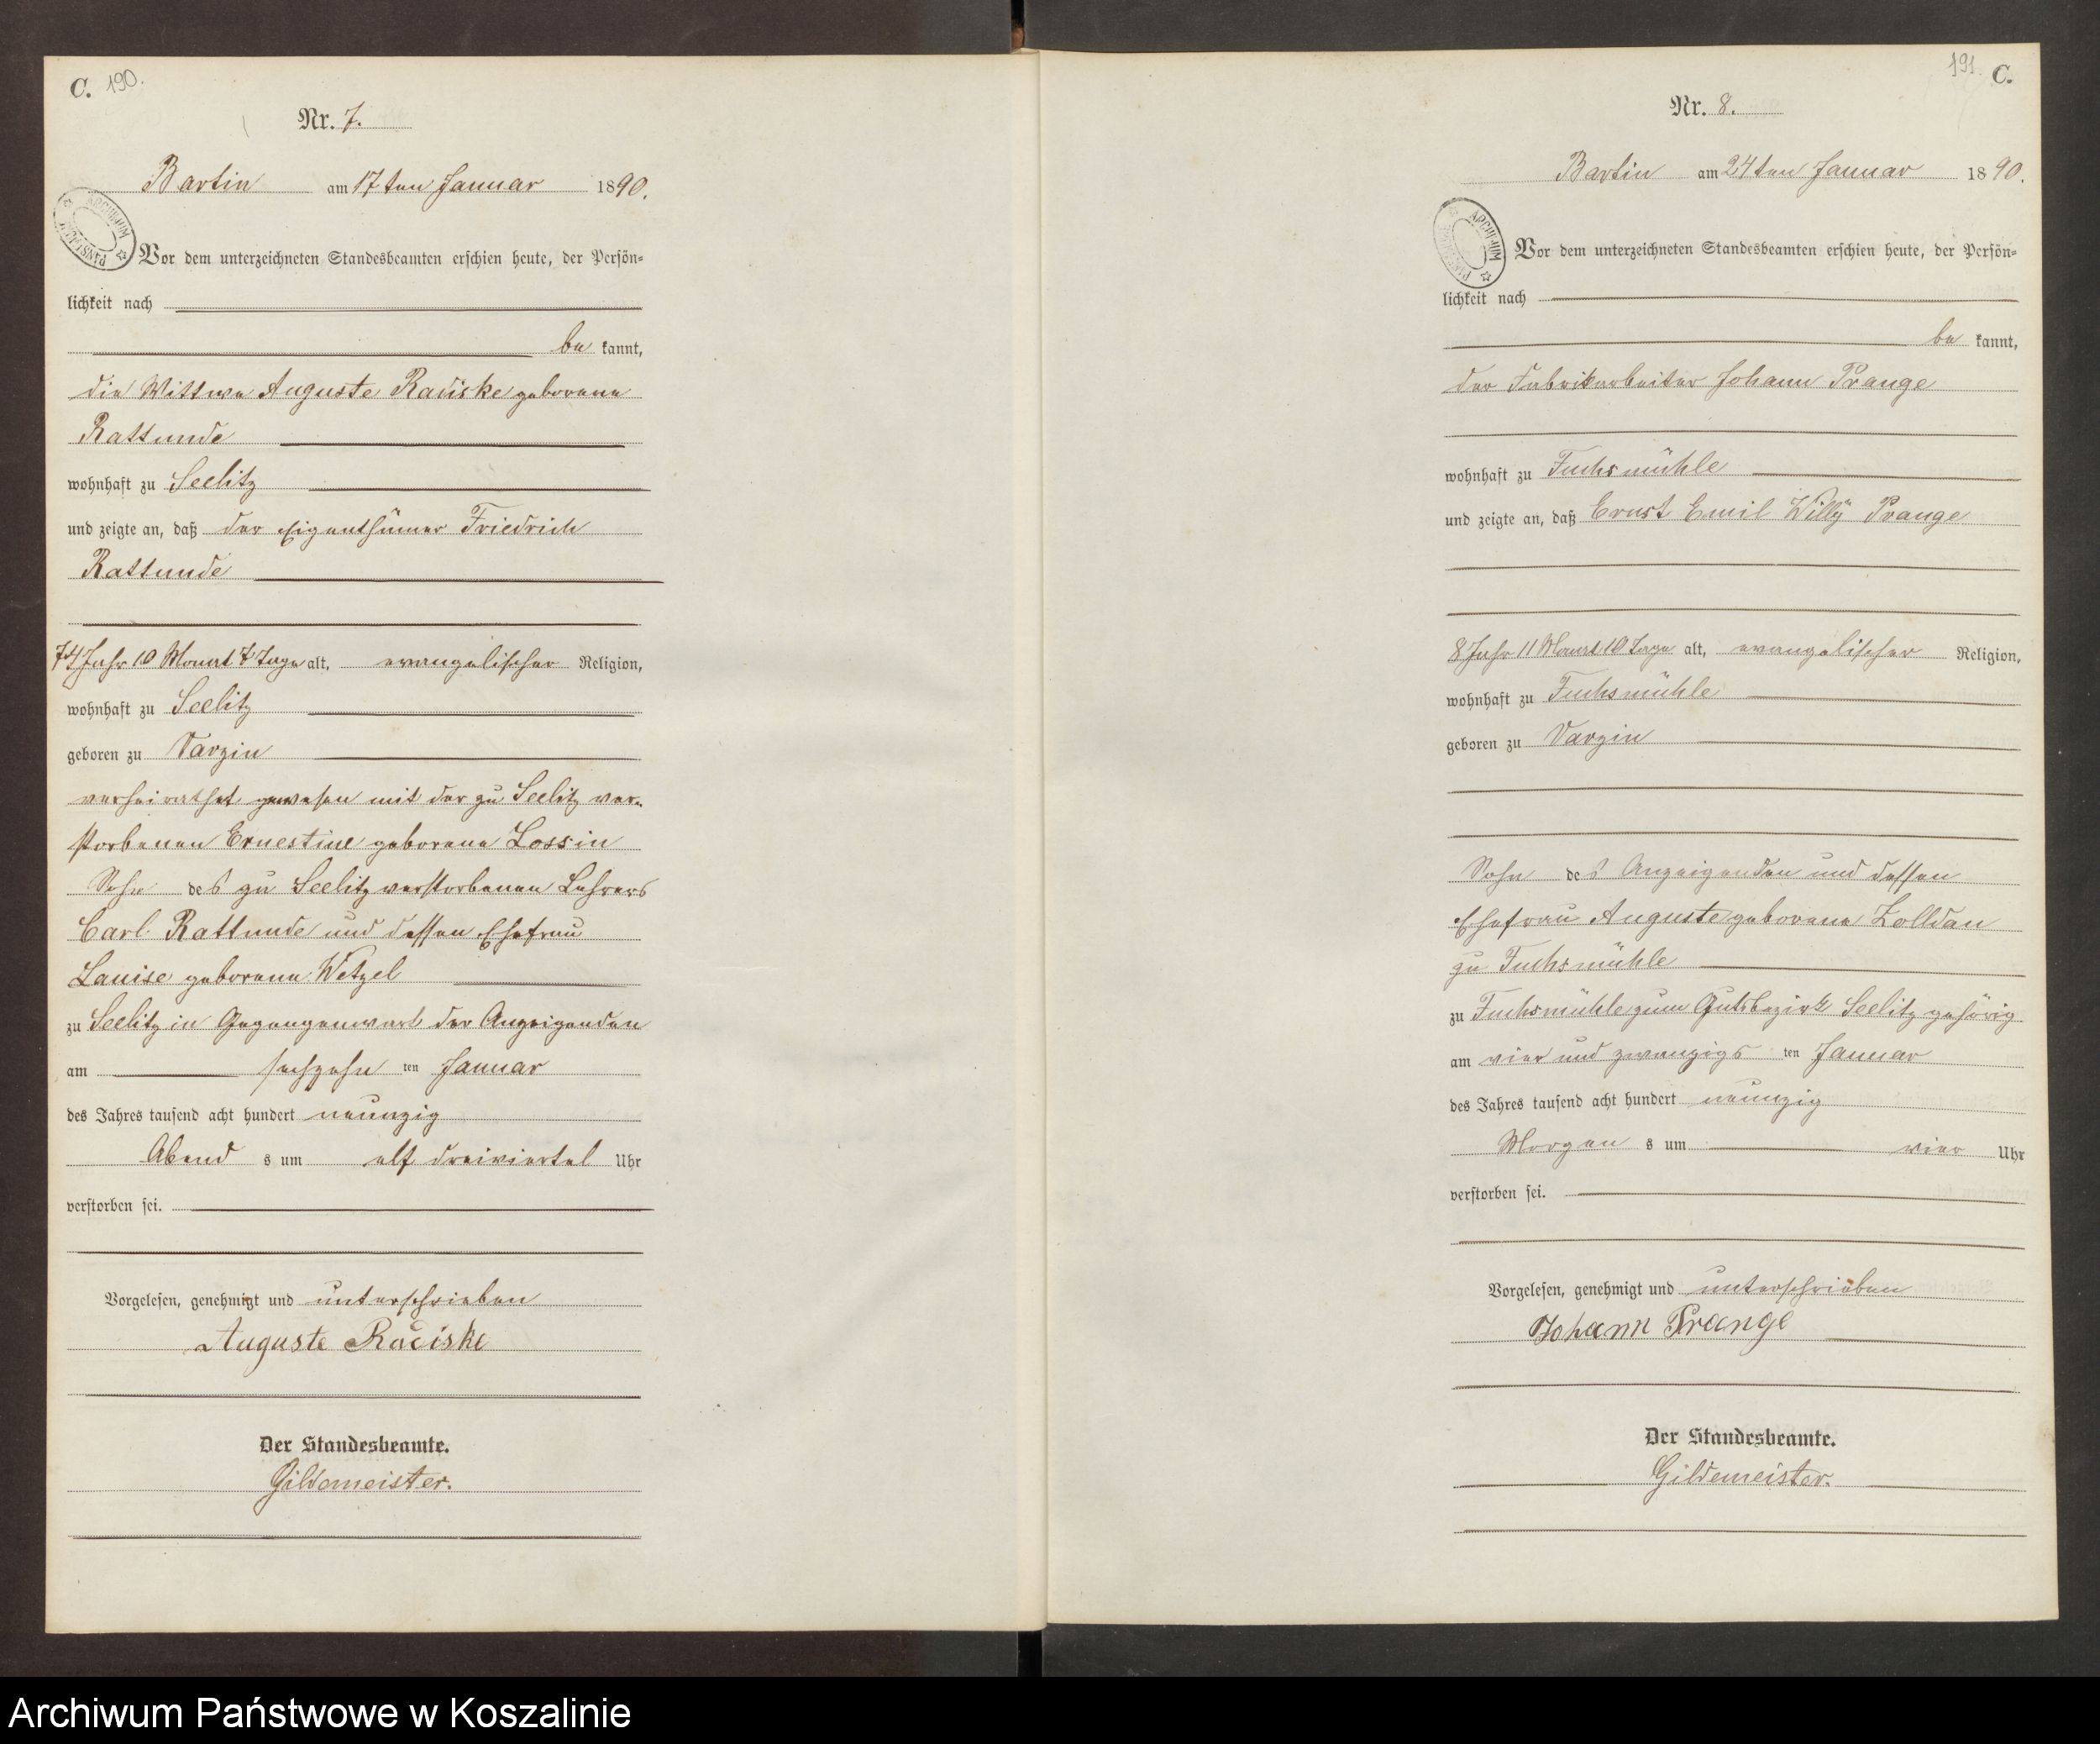 C. 190.
Nr. 7.
Bartin am 17ten Januar 1890.
Vor dem unterzeichneten Standesbeamten erschien heute, der Persön=
lichkeit nach
be kannt,
die Wittwe Auguste Radiske geborene
Rattunde
wohnhaft zu Seelitz
und zeigte an, daß der Eigenthümer Friedrich
Rattunde
74 Jahr 10 Monat 7 Tage alt, evangelischer Religion,
wohnhaft zu Seelitz
geboren zu Varzin
verheirathet gewesen mit der zu Seelitz ver-
storbenen Ernestine geborene Lossin
Sohn des zu Seelitz verstorbenen Lehrers
Carl Rattunde und dessen Ehefrau
Louise geborene Wetzel
zu Seelitz in Gegengenwart der Anzeigenden
am sechzehn ten Januar
des Jahres tausend acht hundert neunzig
Abend s um elf dreiviertel Uhr
verstorben sei.
Vorgelesen, genehmigt und unterschrieben
Auguste Radiske
Der Standesbeamte.
Gildemeister.
191. C.
Nr. 8.
Bartin am 24ten Januar 1890.
Vor dem unterzeichneten Standesbeamten erschien heute, der Persön=
lichkeit nach
be kannt,
der Fabrikarbeiter Johann Prange
wohnhaft zu Fuchsmühle
und zeigte an, daß Ernst Emil Willÿ Prange
8 Jahr 11 Monat 10 Tage alt, evangelischer Religion,
wohnhaft zu Fuchsmühle
geboren zu Varzin
Sohn des Anzeigenden und dessen
Ehefrau Auguste geborene Zolldan
zu Fuchsmühle
zu Fuchsmühle zum Gutsbezirk Seelitz gehörig
am vier und zwanzigs ten Januar
des Jahres tausend acht hundert neunzig
Morgen s um vier Uhr
verstorben sei.
Vorgelesen, genehmigt und unterschrieben
Johann Prange
Der Standesbeamte.
Gildemeister.
Archiwum Państwowe w Koszalinie